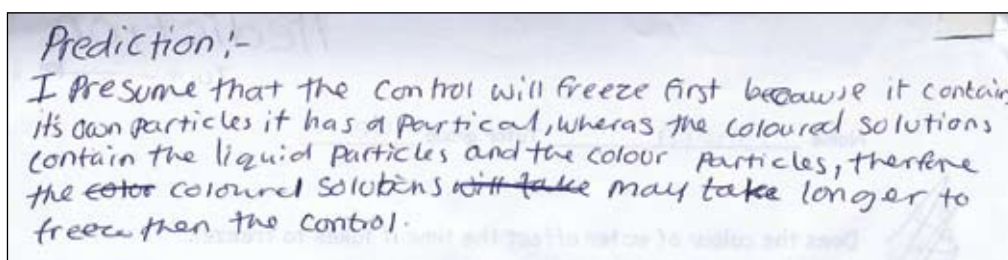 Prediction:-
I Presume that the control will freeze first because it contain
it's own particles it has a partical, wheras the coloured solutions
contain the liquid particles and the colour particles, therfore
the color coloured solutions will take may take longer to
freeze then the control.